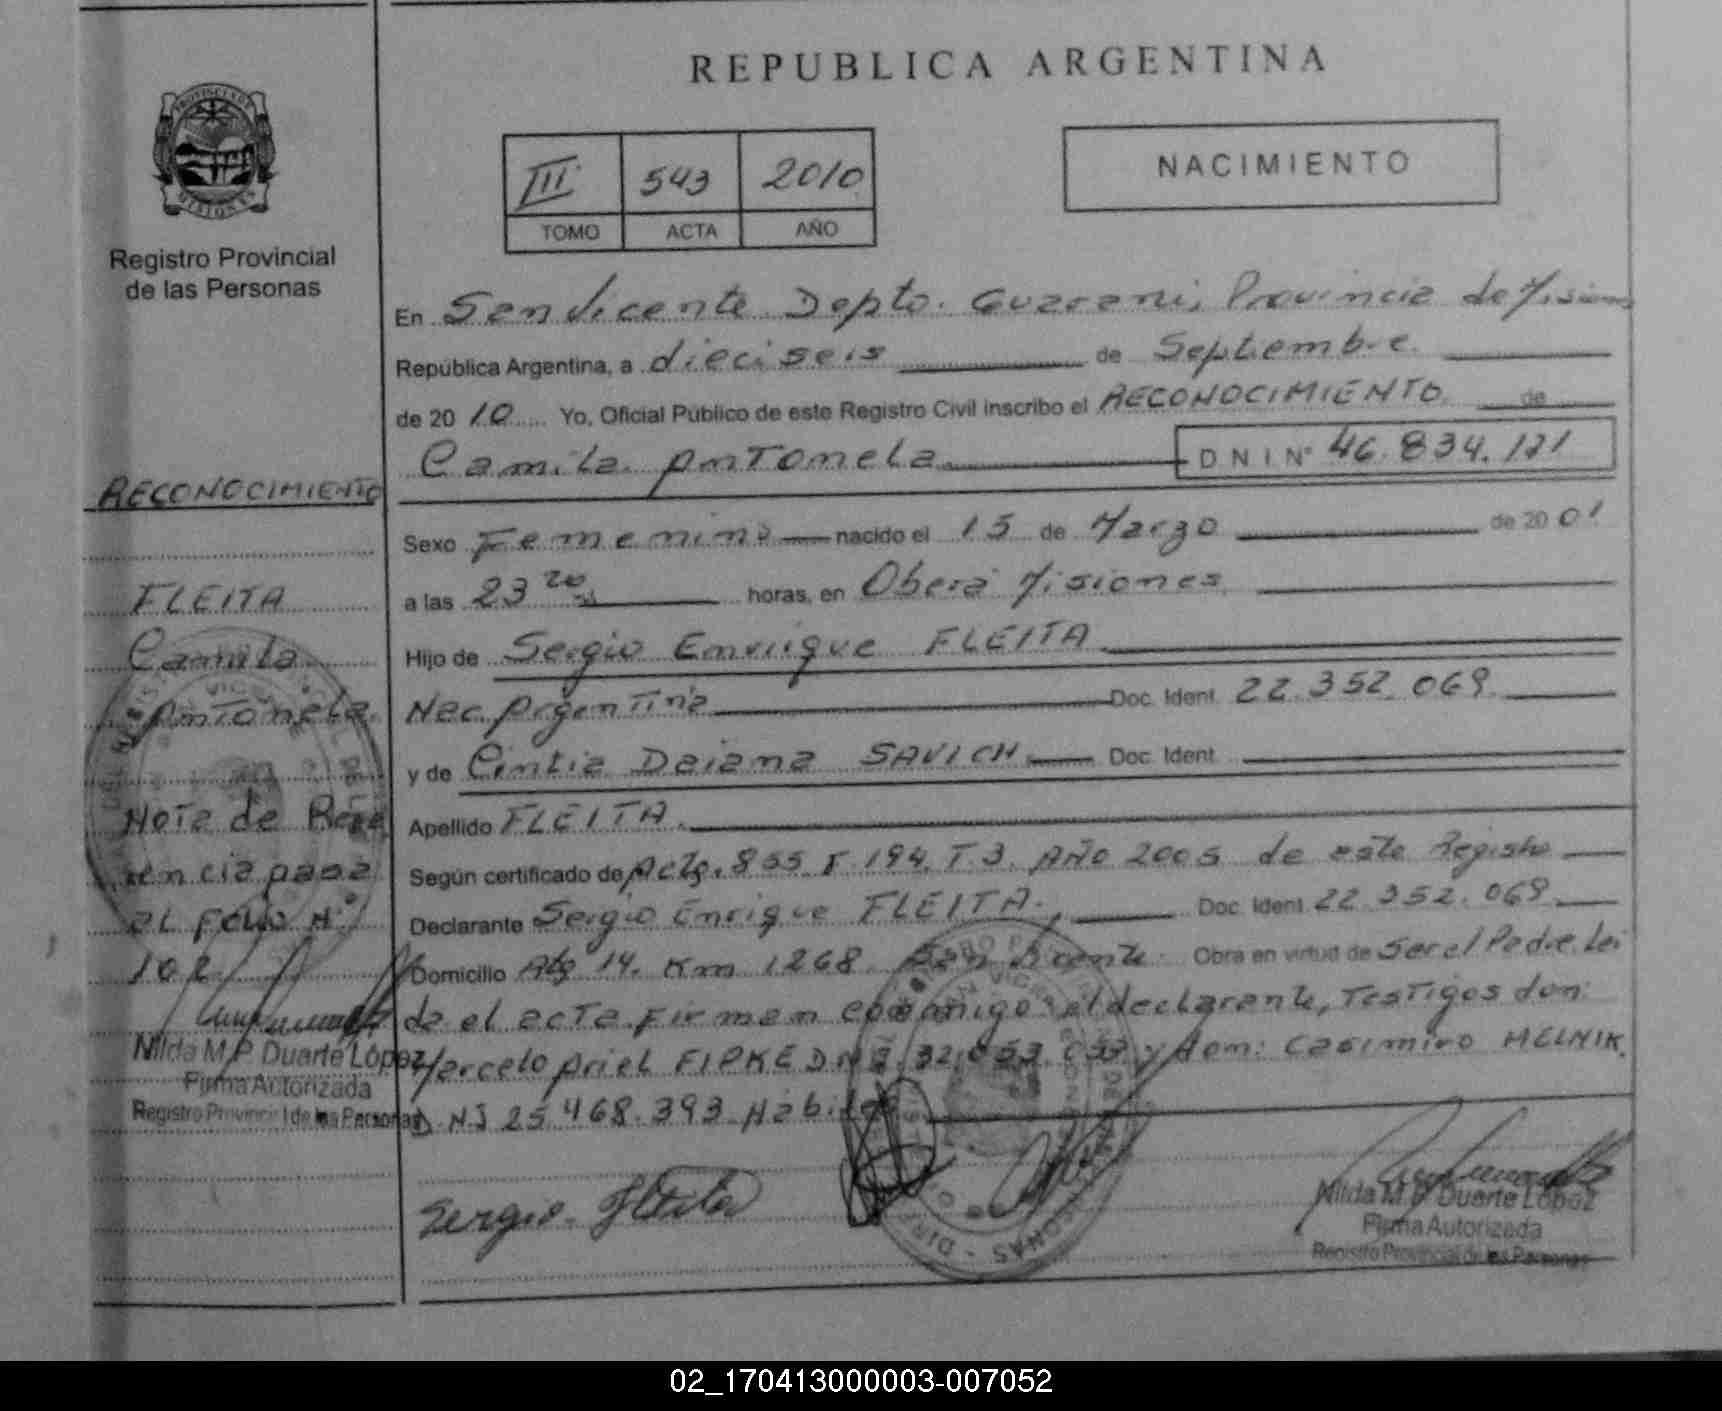 REPUBLICA ARGENTINA
PROVINCIA DE
MISIONES
Registro Provincial
de las Personas
III 543 2010
TOMO ACTA AÑO
NACIMIENTO
En San Vicente Depto. Guarani, Provincia de Misiones
República Argentina, a dieciseis de Septiembre
de 2010 Yo, Oficial Público de este Registro Civil inscribo el RECONOCIMIENTO de
Camila Antonela DNI Nº 46.834.121
Sexo Femenino nacido el 15 de Marzo de 2001
a las 23 20 horas, en Oberá Misiones
Hijo de Sergio Enrrique FLEITA
Nac. Argentina Doc. Ident. 22.352.069
y de Cintia Daiana SAVICH Doc. Ident.
Apellido FLEITA
Según certificado de Acta. 855 F 194. T.3. Año 2005 de este Registro
Declarante Sergio Enrique FLEITA. Doc. Ident. 22.352.069
Domicilio 14. Km 1268. San Vicente. Obra en virtud de Ser el Padre. Lei
da el acta. Firman conmigo el declarante, Testigos don:
Marcelo Ariel FIPKE DNI. y don: Casimiro MELNIK.
D.N.I 25.468.393 Habiles
Sergio Fleita
Nilda M.P. Duarte López
Firma Autorizada
Registro Provincial de las Personas
RECONOCIMIENTO
FLEITA
Camila
Antonela
Nota de Refe
rencia pasa
al Folio Nº
102
Nilda M.P. Duarte López
Firma Autorizada
Registro Provincial de las Personas
02_170413000003-007052